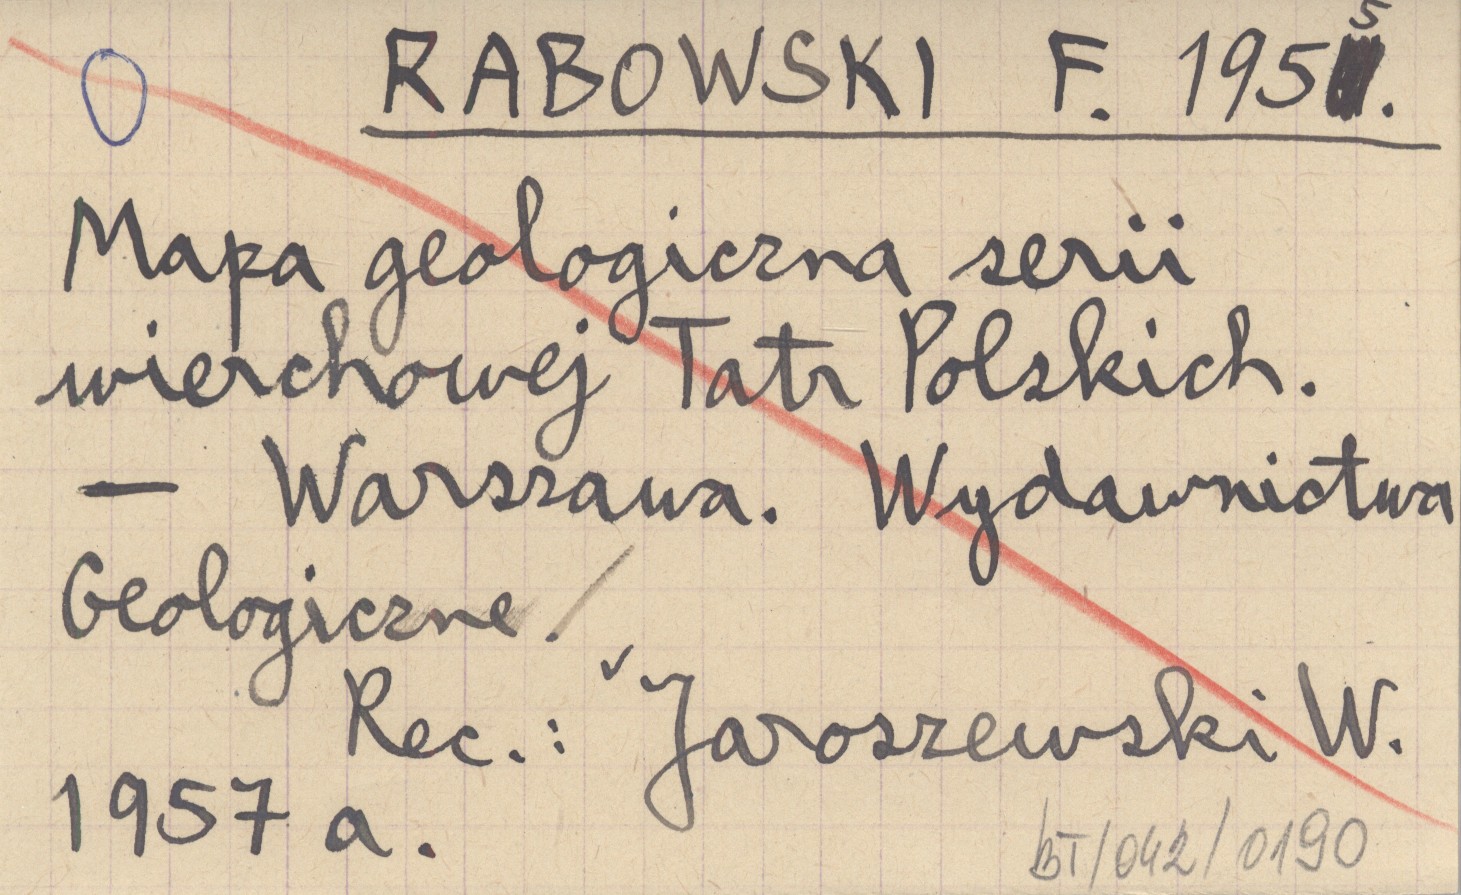 RABOWSKI F. 1955.
Mapa geologiczna serii
wierchowej Tatr Polskich.
— Warszawa. Wydawnictwa
Geologiczne.
Rec.: Jaroszewski W.
1957 a.
BT/042/0190